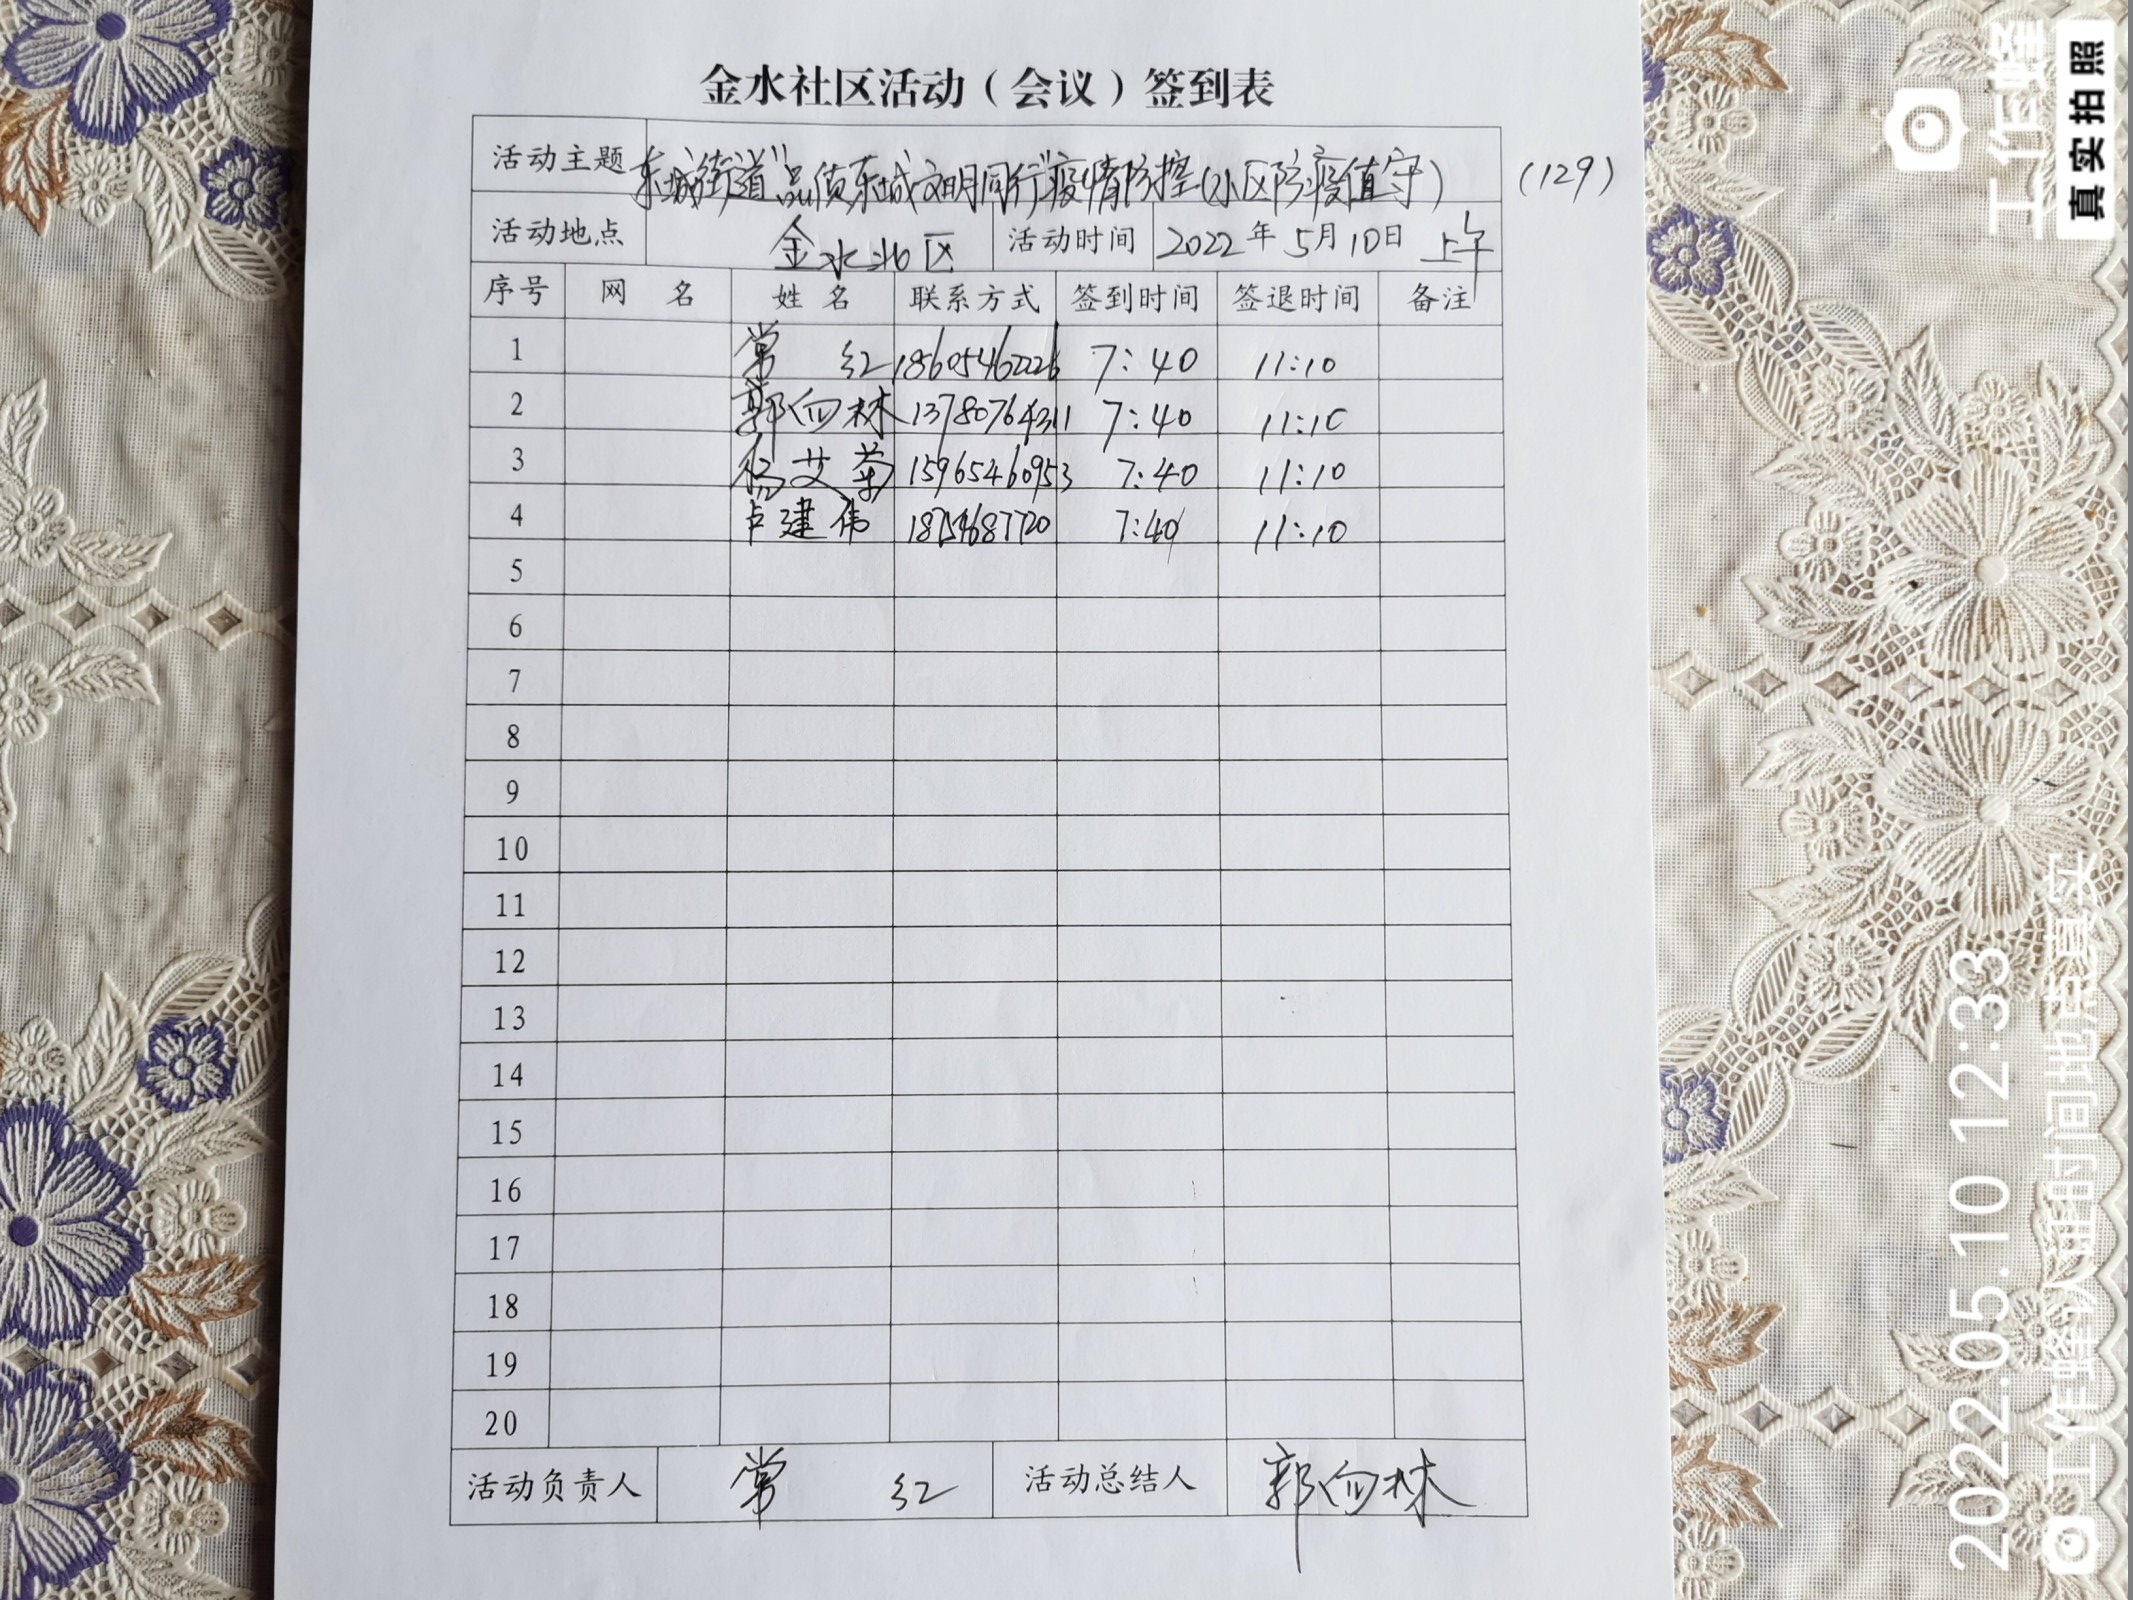 金水社区活动（会议）签到表
活动主题 东城街道"品质东城·文明同行"疫情防控(小区防疫值守) (129)
活动地点 金水北区 活动时间 2022年5月10日 上午
序号 网 名 姓 名 联系方式 签到时间 签退时间 备注
1 常 红 18605462226 7:40 11:10
2 郭向林 13780764311 7:40 11:10
3 杨艾菊 15965460953 7:40 11:10
4 卢建伟 18754687720 7:40 11:10
5
6
7
8
9
10
11
12
13
14
15
16
17
18
19
20
活动负责人 常 红 活动总结人 郭向林
工作蜂
真实拍照
2022.05.10 12:33
工作蜂认证时间地点真实